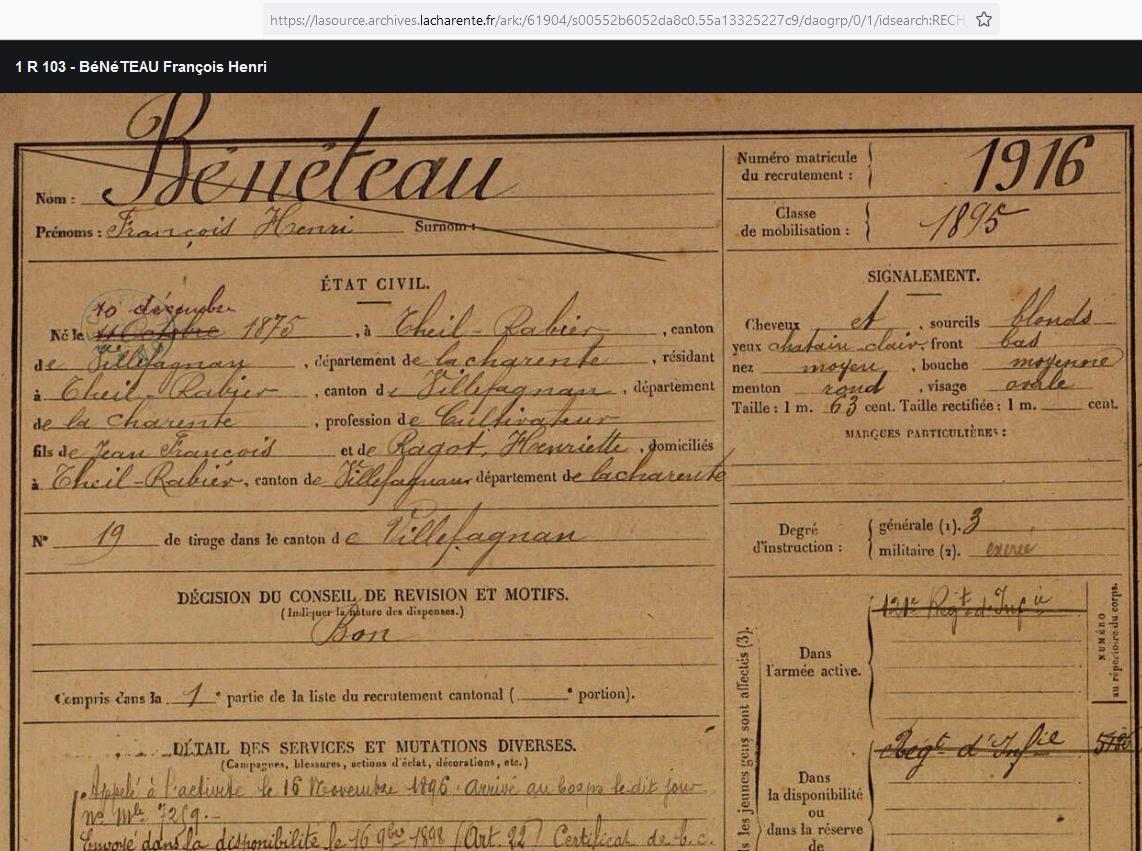 https://lasource.archives.lacharente.fr/ark:/61904/s00552b6052da8c0.55a13325227c9/daogrp/0/1/idsearch:RECH
1 R 103 - BéNéTEAU François Henri
Nom : Bénéteau
Prénoms : François Henri Surnom :
Numéro matricule du recrutement : 1916
Classe de mobilisation : 1895
ÉTAT CIVIL.
10 décembre
Né le 11 Octobre 1875, à Theil-Rabier, canton
de Villefagnan, département de la charente, résidant
à Theil-Rabier, canton de Villefagnan, département
de la Charente, profession de Cultivateur
fils de Jean François et de Ragot, Henriette, domiciliés
à Theil-Rabier, canton de Villefagnan, département de la charente
N° 19 de tirage dans le canton de Villefagnan
SIGNALEMENT.
Cheveux et, sourcils blonds
yeux chatain clair, front bas
nez moyen, bouche moyenne
menton rond, visage ovale
Taille : 1 m. 63 cent. Taille rectifiée : 1 m. cent.
MARQUES PARTICULIÈRES :
Degré d'instruction :
générale (1). 3
militaire (2). exercé
DÉCISION DU CONSEIL DE REVISION ET MOTIFS.
(Indiquer la nature des dispenses.)
Bon
Compris dans la 1e partie de la liste du recrutement cantonal ( e portion).
DÉTAIL DES SERVICES ET MUTATIONS DIVERSES.
(Campagnes, blessures, actions d'éclat, décorations, etc.)
Appelé à l'activité le 16 Novembre 1896. Arrivé au Corps le dit jour
no Mle 7259.-
Envoyé dans la disponibilité le 16 9bre 1898 (Art. 22) Certificat de b.c.
les jeunes gens sont affectés (3).
Dans
l'armée active.
121e Regt d'Infie
NUMÉRO
au répertoire du corps.
Dans
la disponibilité
ou
dans la réserve
de
Regt d'Infie